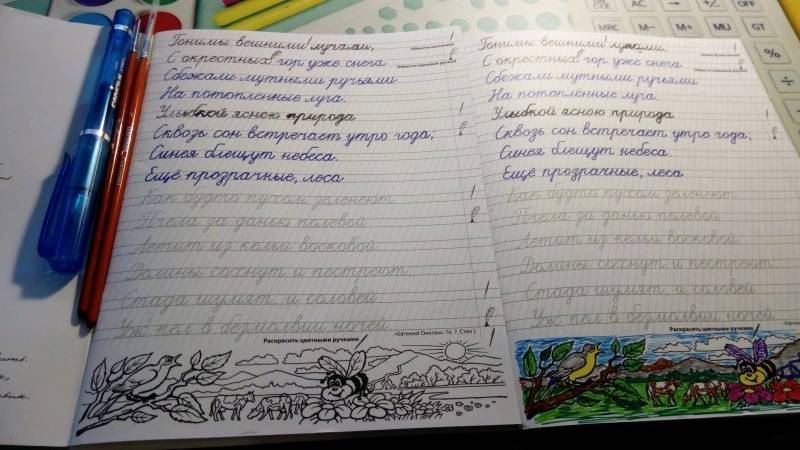 Гонимы вешними лучами,
С окрестных гор уже снега
Сбежали мутными ручьями
На потопленные луга.
Улыбкой ясною природа
Сквозь сон встречает утро года;
Синея блещут небеса.
Ещё прозрачные, леса
Как будто пухом зеленеют.
Пчела за данью полевой
Летит из кельи восковой.
Долины сохнут и пестреют;
Стада шумят, и соловей
Уж пел в безмолвии ночей.
«Евгений Онегин». Гл. 7. Стих I.
Раскрасить цветными ручками
Гонимы вешними лучами,
С окрестных гор уже снега
Сбежали мутными ручьями
На потопленные луга.
Улыбкой ясною природа
Сквозь сон встречает утро года;
Синея блещут небеса.
Ещё прозрачные, леса
Как будто пухом зеленеют.
Пчела за данью полевой
Летит из кельи восковой.
Долины сохнут и пестреют;
Стада шумят, и соловей
Уж пел в безмолвии ночей.
Раскрасить цветными ручками
CE AC → +/-
MRC M− M+ MU GT
%